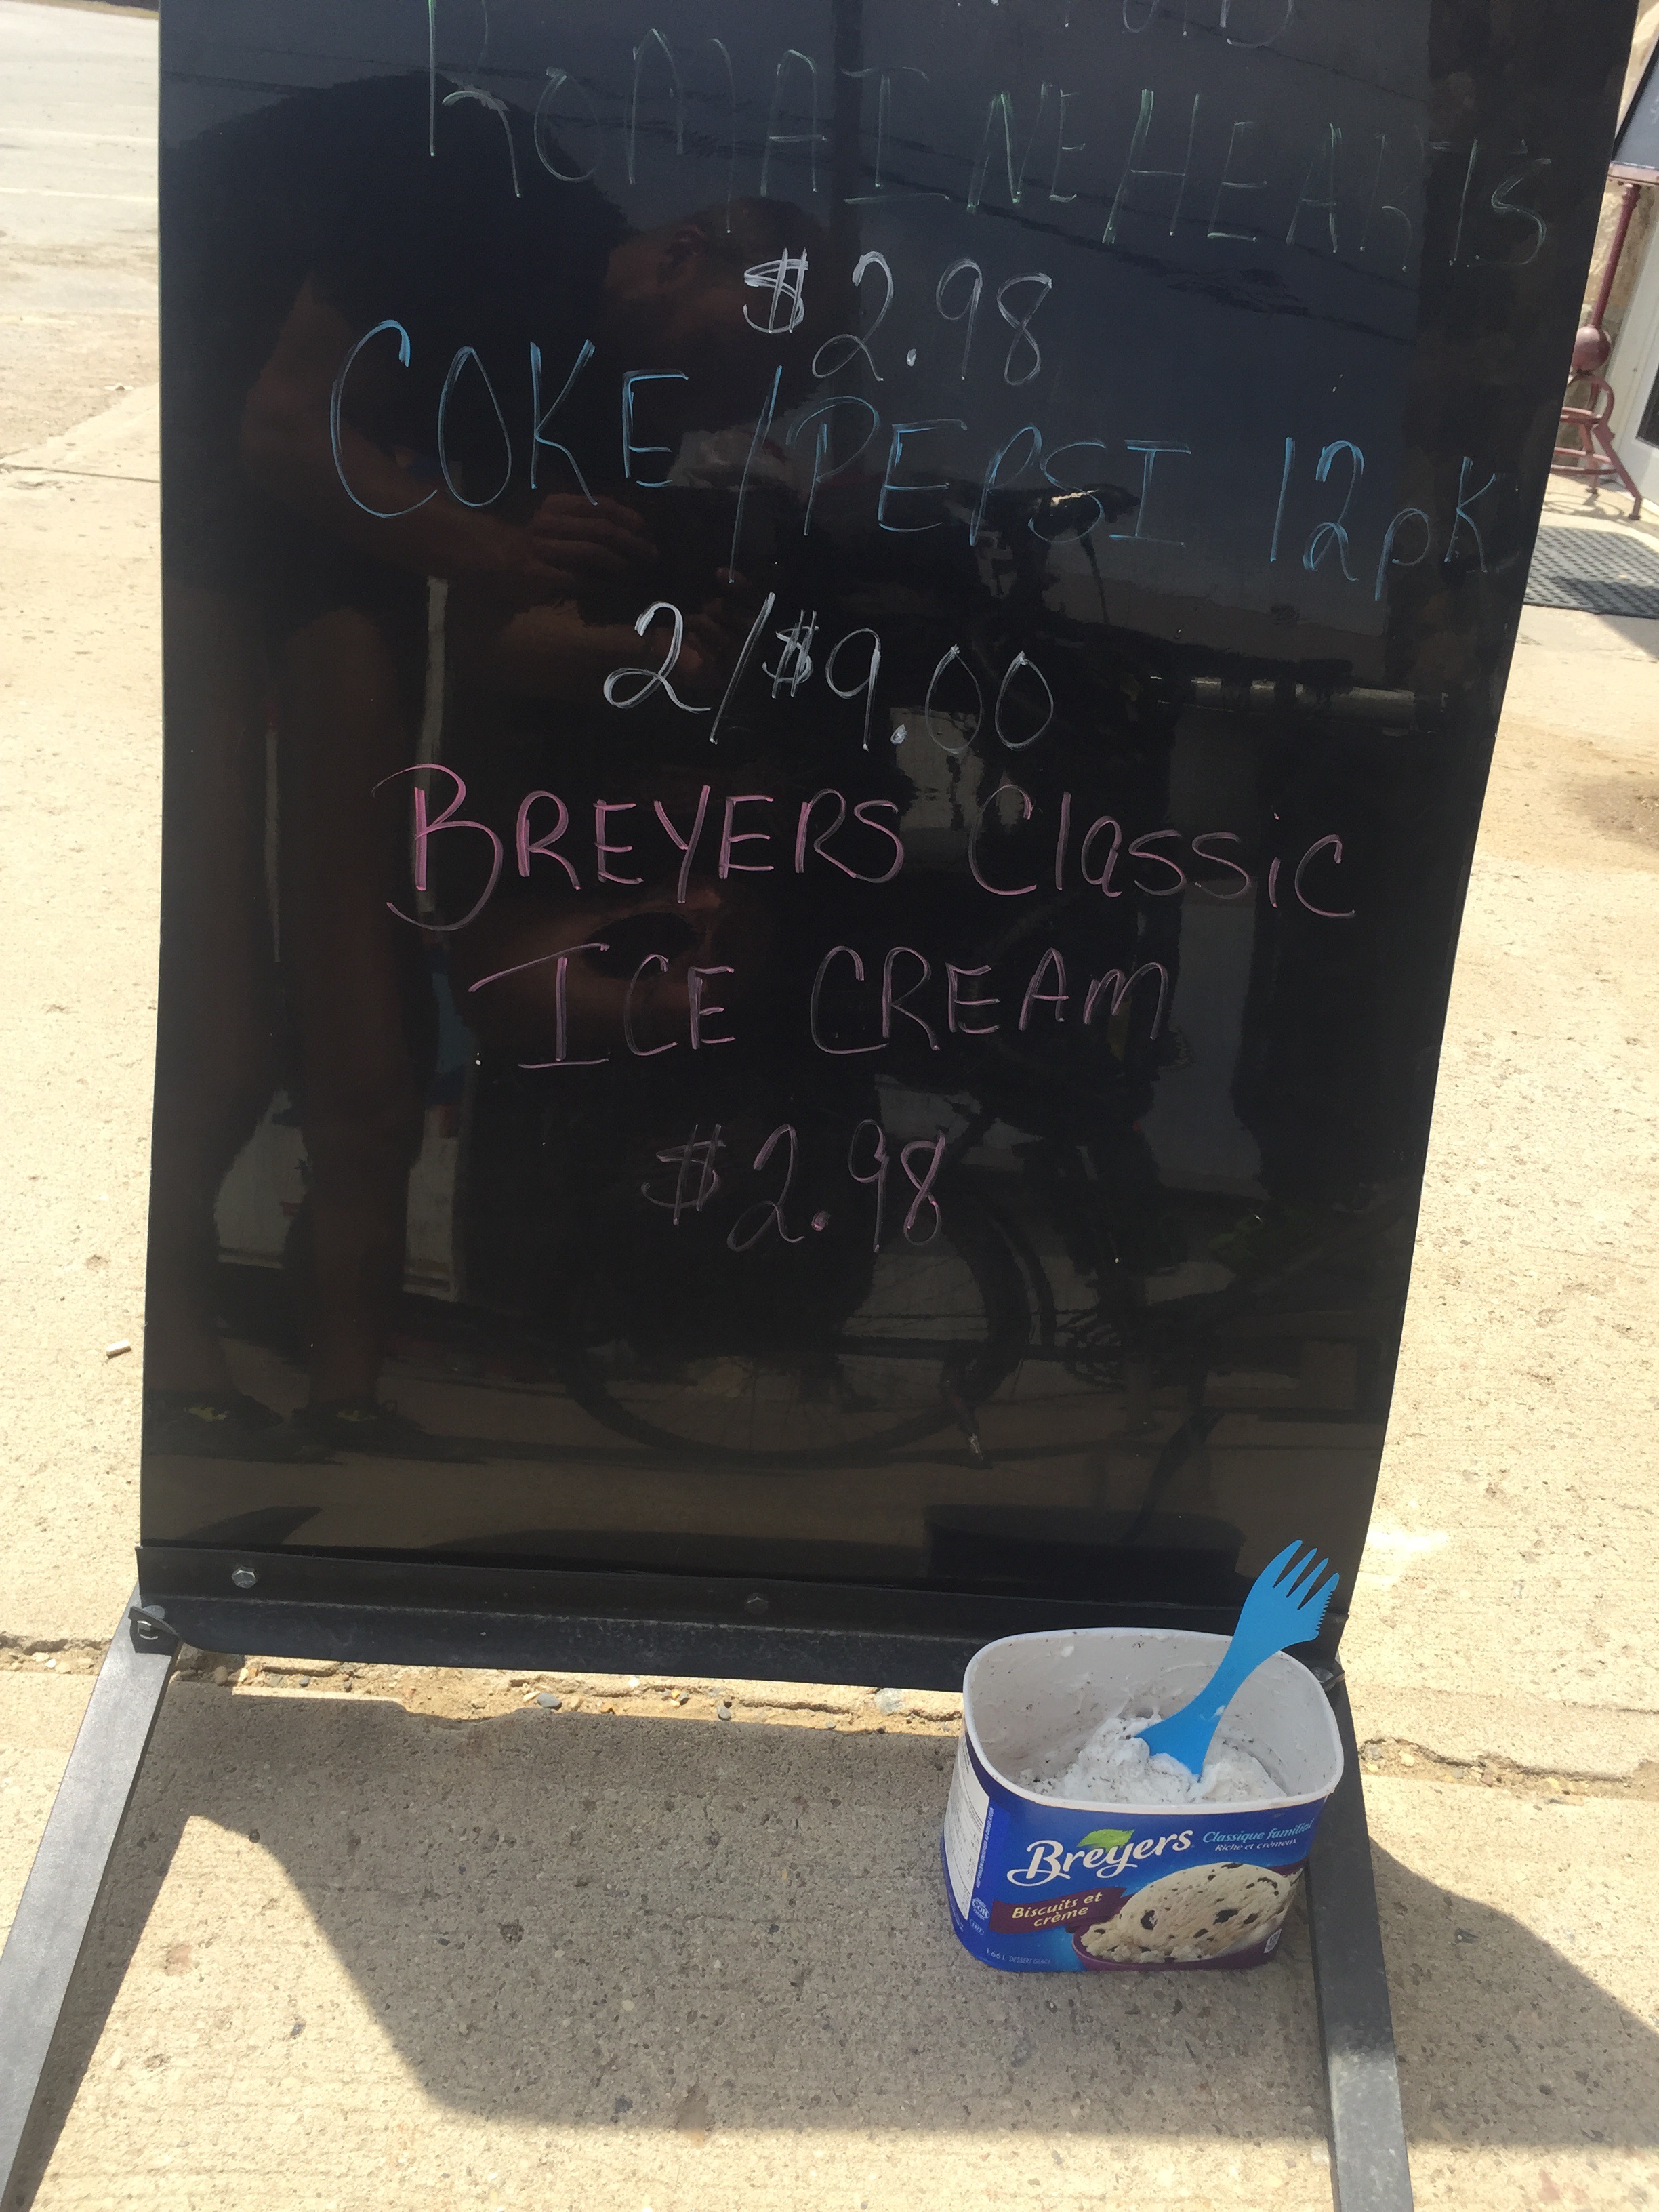 ROMAINE HEARTS
$2.98
COKE/PEPSI 12pK
2/$9.00
BREYERS Classic
ICE CREAM
$2.98
Breyers
Classique familial
Riche et crémeux
Biscuits et
crème
1.66 L DESSERT GLACÉ